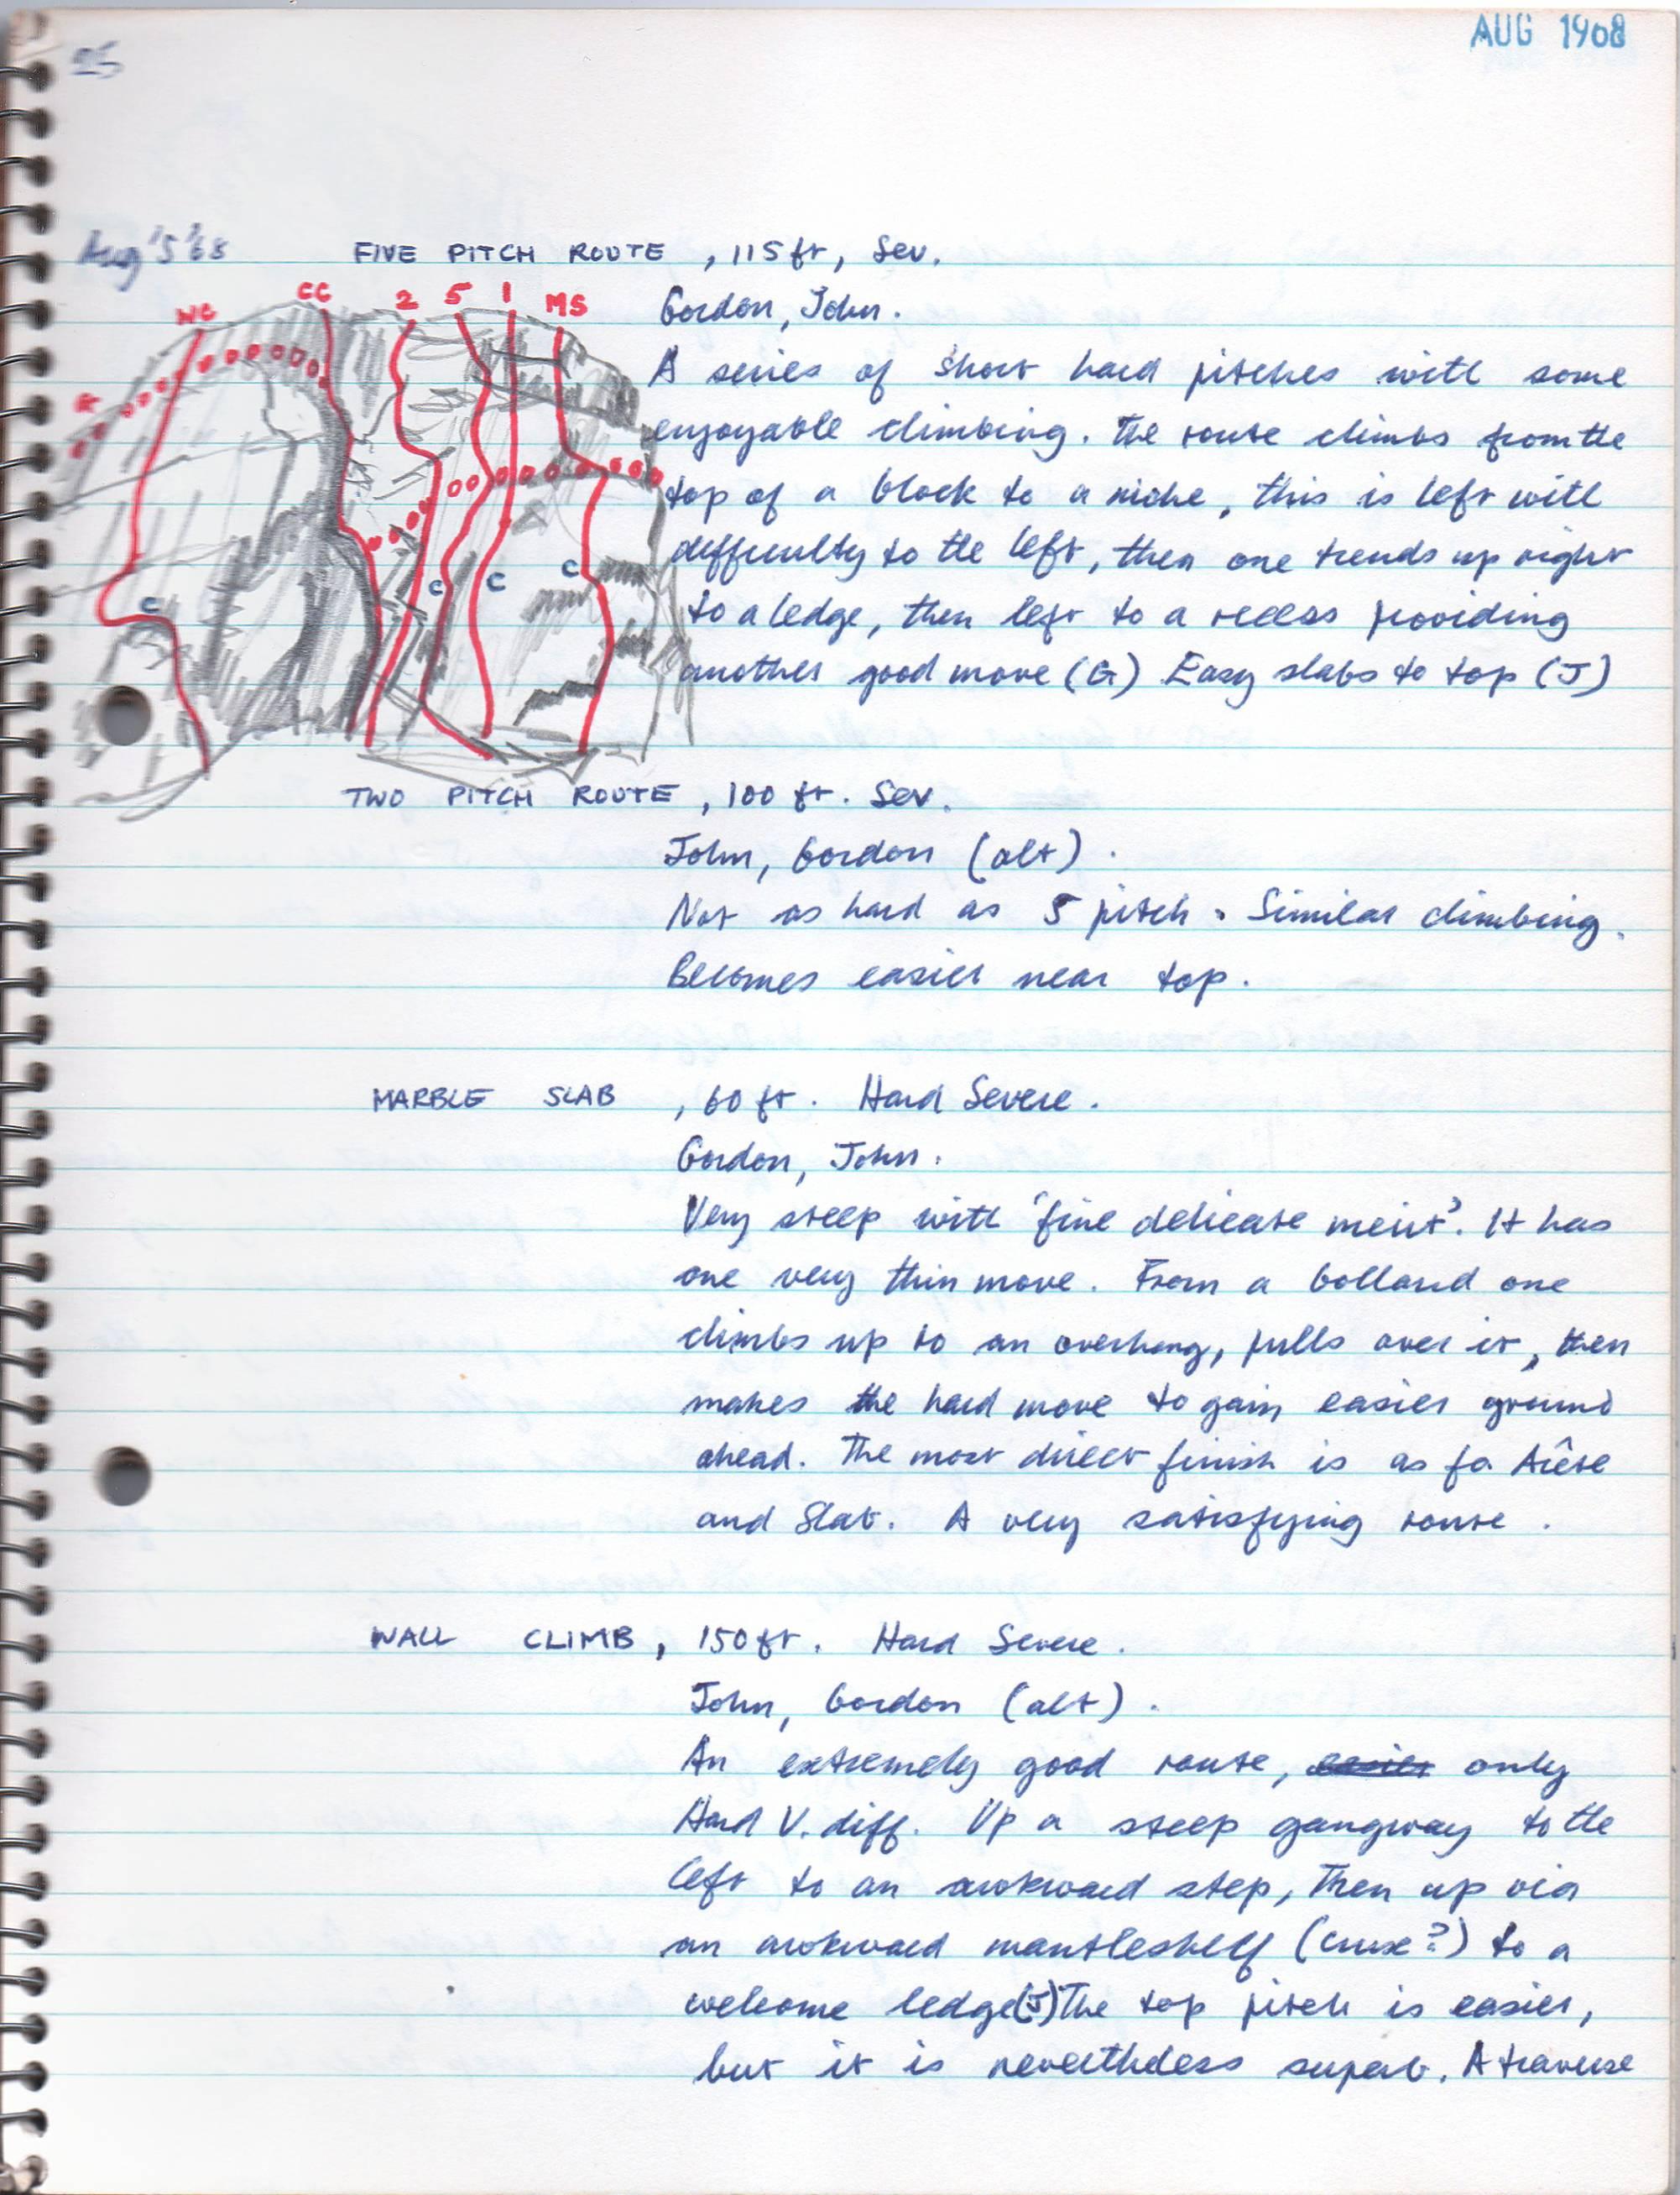 AUG 1968
25
Aug '5 '68
FIVE PITCH ROUTE , 115 ft, Sev.
NC CC 2 5 1 MS
Gordon, John.
A series of short hard pitches with some
enjoyable climbing. The route climbs from the
top of a block to a niche, this is left with
difficulty to the left, then one trends up right
C C C C
to a ledge, then left to a recess providing
another good move (G) Easy slabs to top (J)
TWO PITCH ROUTE , 100 ft. Sev.
John, Gordon (alt).
Not as hard as 5 pitch. Similar climbing.
Becomes easier near top.
MARBLE SLAB , 60 ft. Hard Severe.
Gordon, John.
Very steep with 'fine delicate merit'. It has
one very thin move. From a bollard one
climbs up to an overhang, pulls over it, then
makes the hard move to gain easier ground
ahead. The most direct finish is as fo Arête
and Slab. A very satisfying route.
WALL CLIMB, 150 ft. Hard Severe.
John, Gordon (alt).
An extremely good route, easier only
Hard V. diff. Up a steep gangway to the
left to an awkward step, Then up via
an awkward mantleshelf (crux?) to a
welcome ledge(J) The top pitch is easier,
but it is nevertheless superb. A traverse